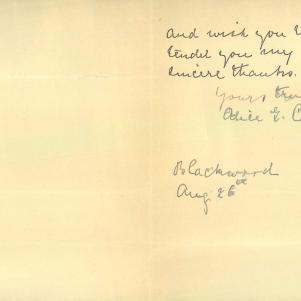 And wish you
tender you my
sincere thanks.
Yours
Alice E.
Blackwood
Aug 26th